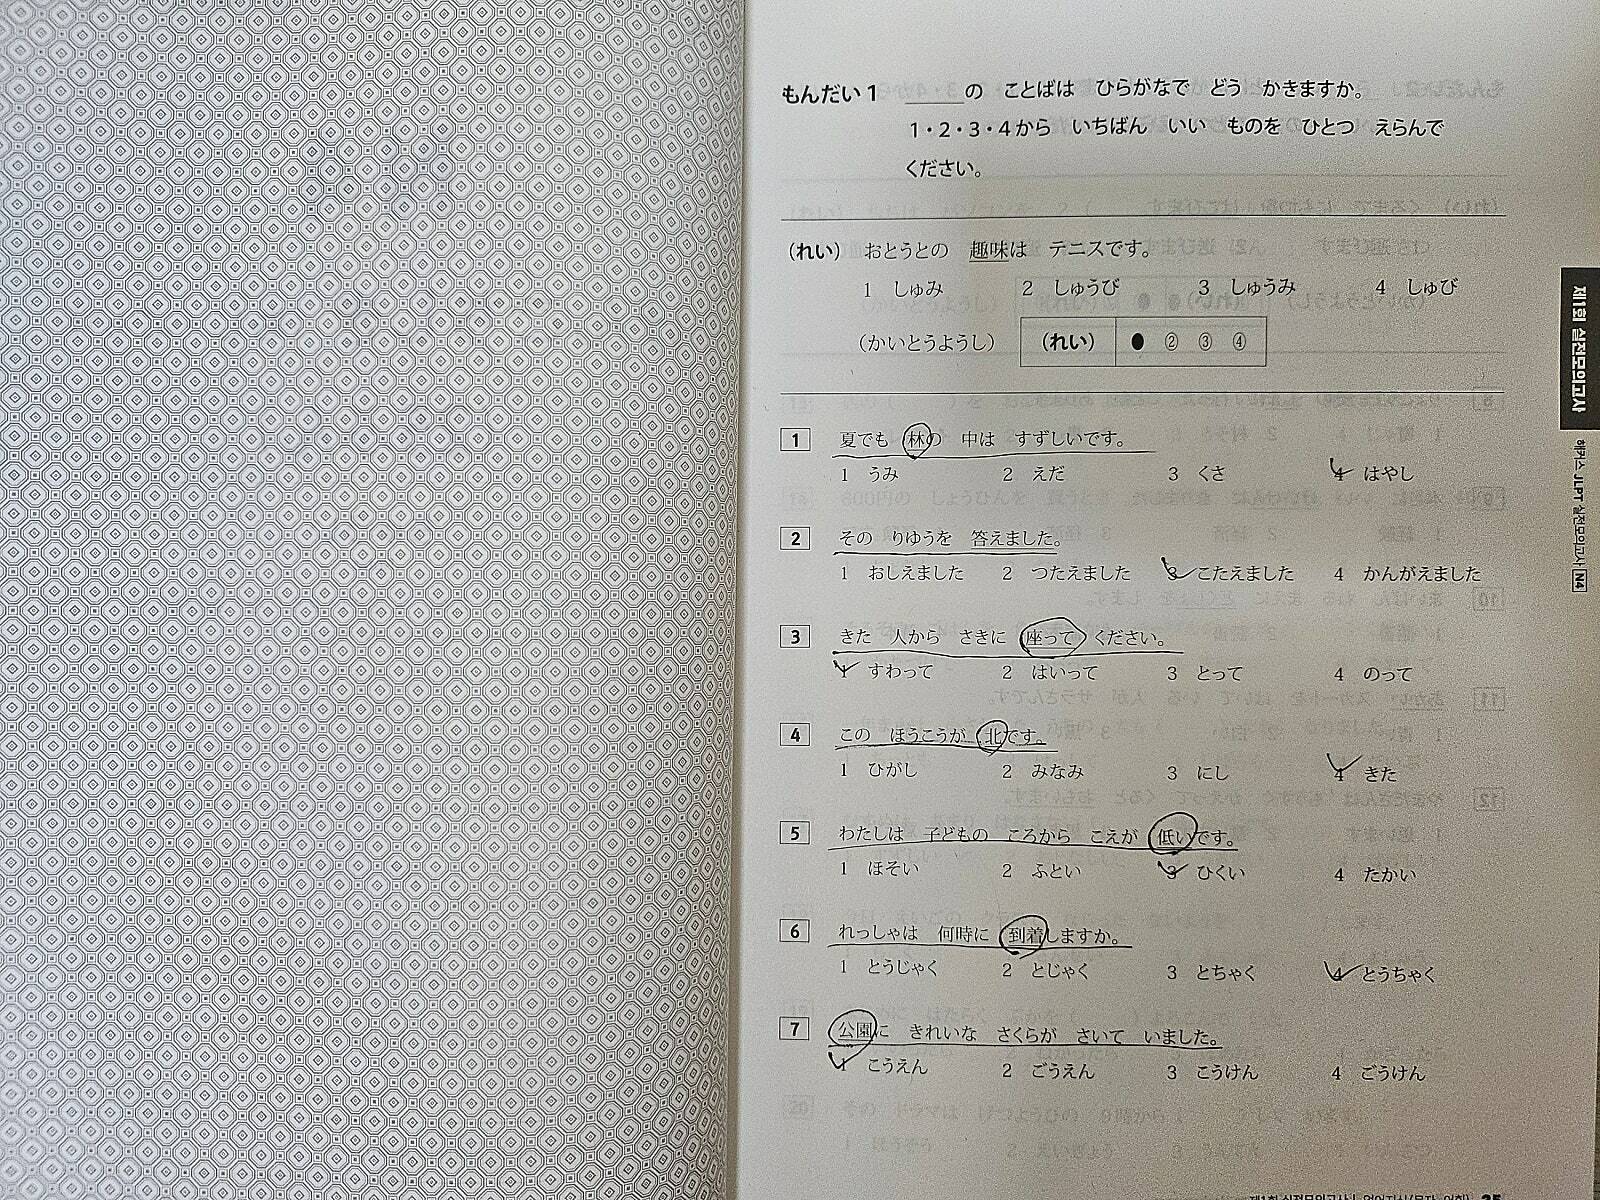 もんだい1 ＿＿＿の ことばは ひらがなで どう かきますか。
1・2・3・4から いちばん いい ものを ひとつ えらんで
ください。
(れい) おとうとの 趣味は テニスです。
1 しゅみ 2 しゅうび 3 しゅうみ 4 しゅび
(かいとうようし) (れい) ● ② ③ ④
1 夏でも 林の 中は すずしいです。
1 うみ 2 えだ 3 くさ 4 はやし
2 その りゆうを 答えました。
1 おしえました 2 つたえました 3 こたえました 4 かんがえました
3 きた 人から さきに 座って ください。
1 すわって 2 はいって 3 とって 4 のって
4 この ほうこうが 北です。
1 ひがし 2 みなみ 3 にし 4 きた
5 わたしは 子どもの ころから こえが 低いです。
1 ほそい 2 ふとい 3 ひくい 4 たかい
6 れっしゃは 何時に 到着しますか。
1 とうじゃく 2 とじゃく 3 とちゃく 4 とうちゃく
7 公園に きれいな さくらが さいて いました。
1 こうえん 2 ごうえん 3 こうけん 4 ごうけん
제1회 실전모의고사
해커스 JLPT 실전모의고사 N4